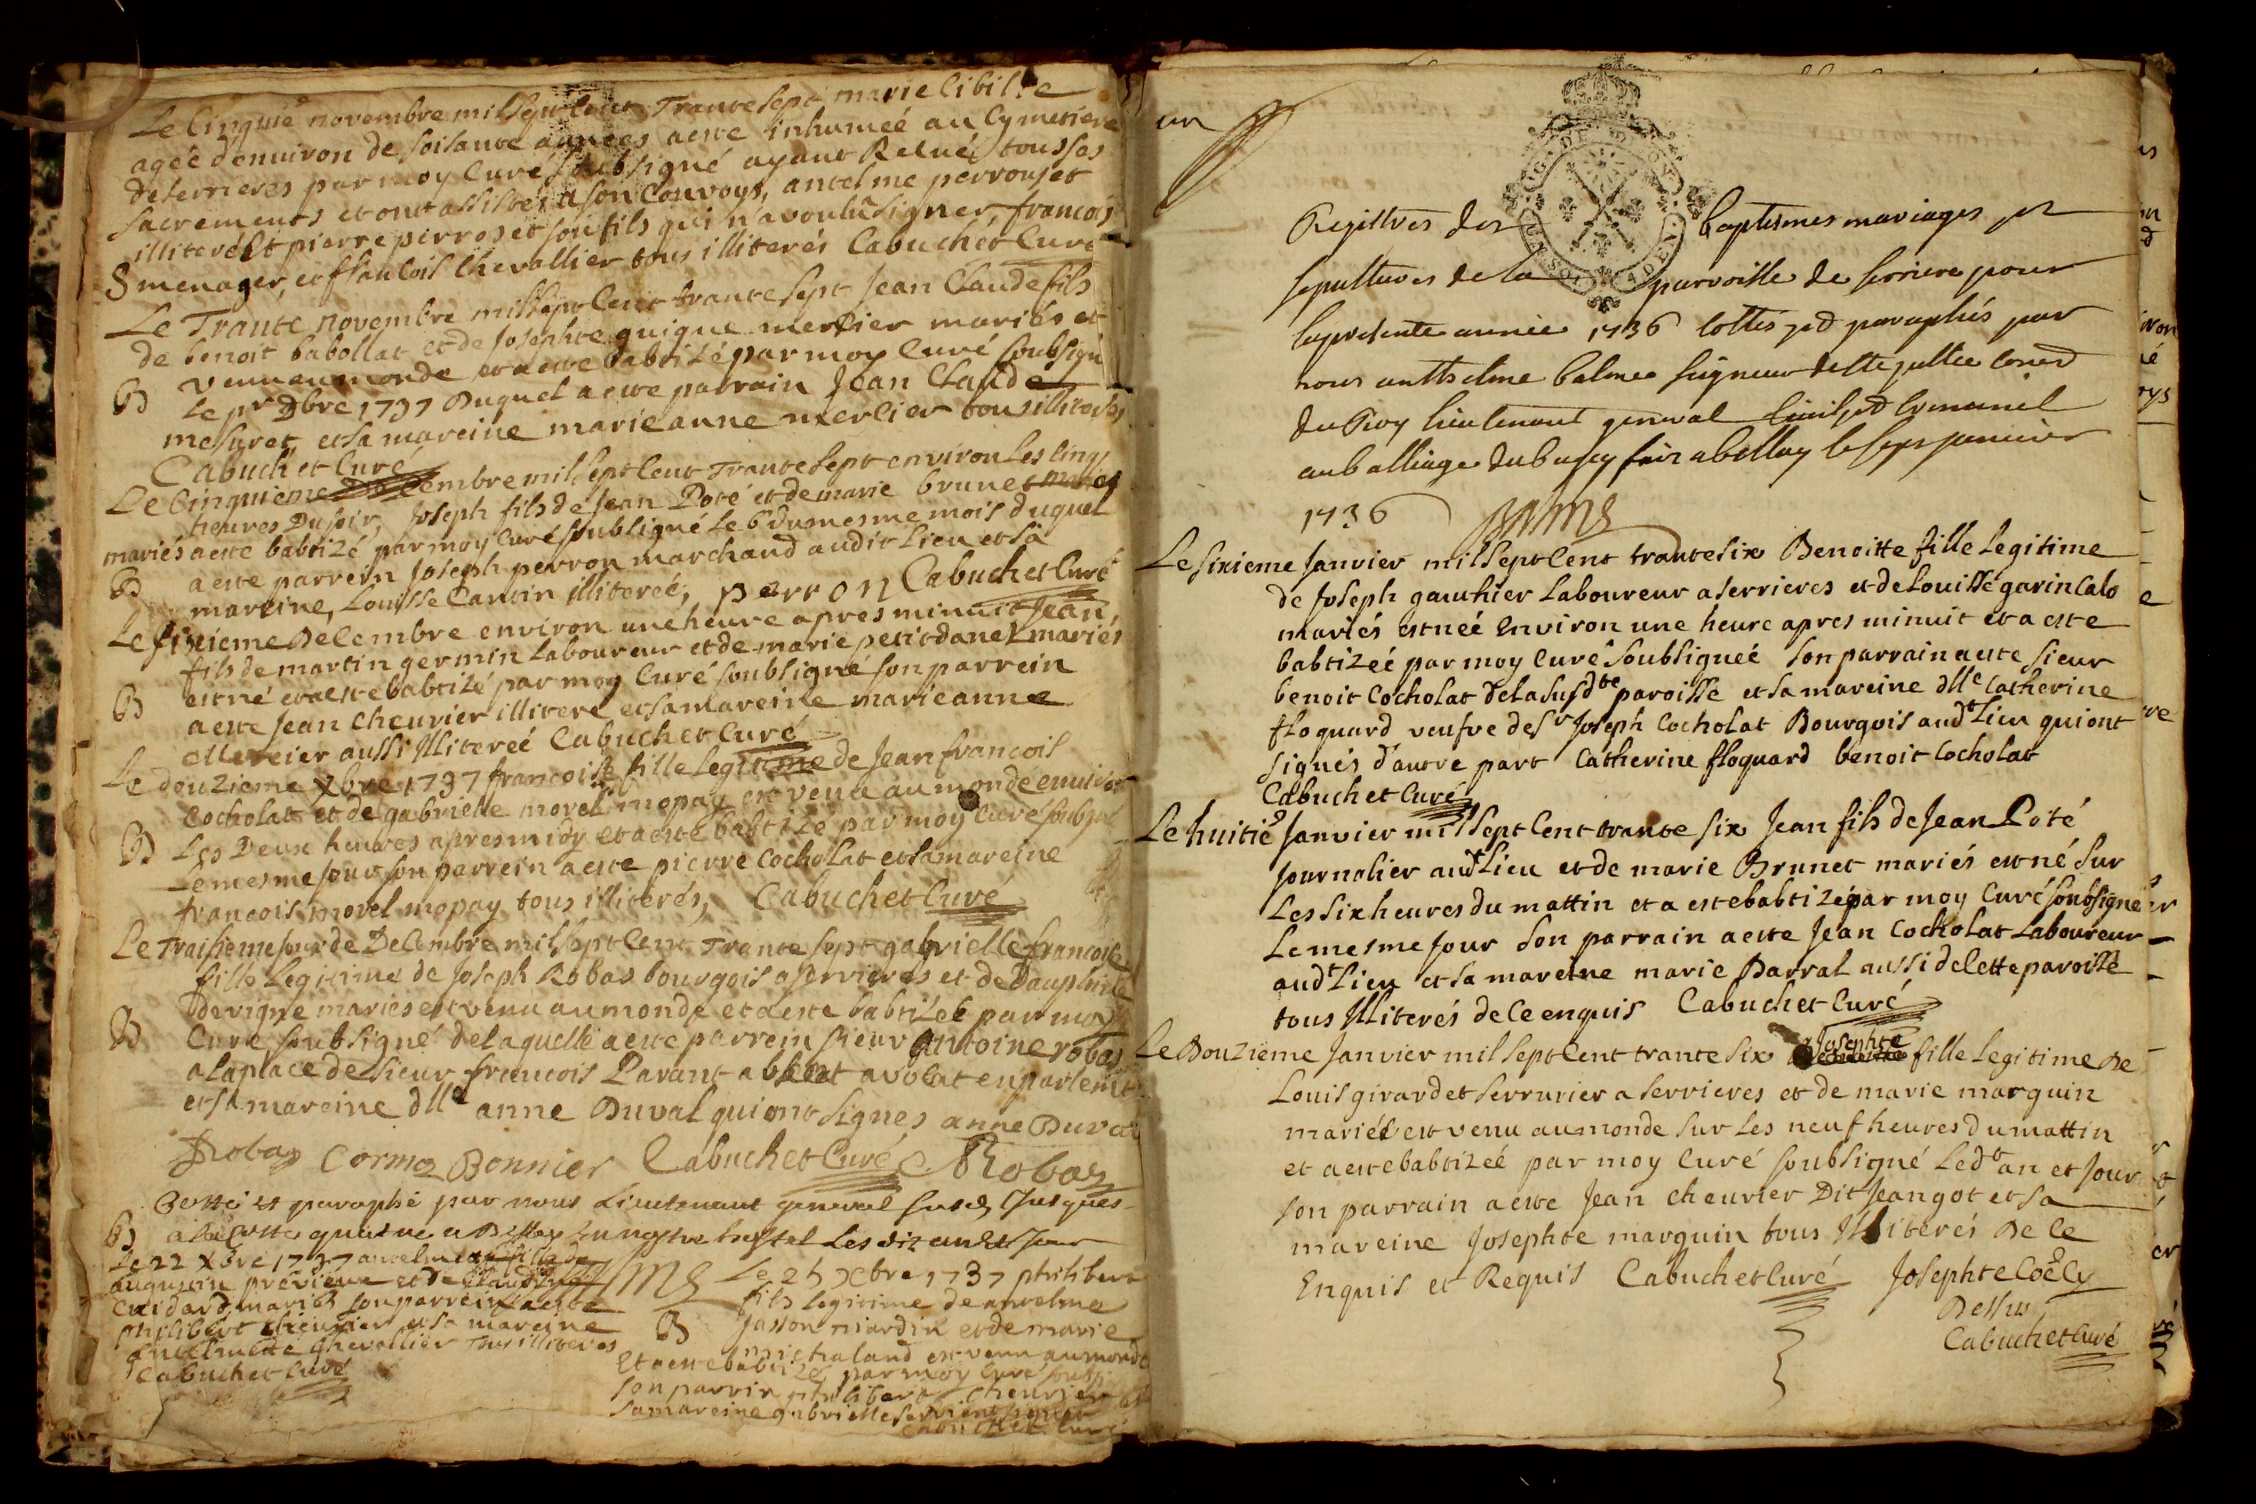 Le Cinquie novembre mil Sept Cent Trante Sept marie Cibille
agée d'environ de soisante années a este inhumeé au Cymetiere
de serrieres par moy Curé soubsigné ayant Receué tous ses
sacrements et ont assistés a son Convoys, antelme perrouset
illiteré et pierre perroset son fils qui n'a voulu signer, francois
S menager, et francois Chevallier tous illiterés Cabuchet Curé
Le Trante novembre mil Sept Cent trante sept Jean Claude fils
de benoit babollat et de Josephte guigue mercier mariés et
venu au monde et a este babtizé par moy Curé soubsigné
B Le pr Dbre 1737 Duquel a este parrain Jean Claude
mesuret et sa mareine marie anne mercier tous illiterés
Cabuchet Curé
Le Cinquieme Decembre mil Sept Cent Trante Sept environ les Cinq
heures Du soir, Joseph fils de Jean Poté et de marie brunet
mariés a este babtizé par moy Curé soubsigné Le 6 du mesme mois duquel
B a este parrein Joseph perron marchand audit Lieu et sa
mareine, Louisse Cantin illitereé, perron Cabuchet Curé
Le sixieme Decembre environ une heure apres minuit Jean,
fils de martin germin Laboureur et de marie petit danet mariés
B est né et a este babtizé par moy Curé soubsigné son parrein
a este Jean Cheurier illiteré et sa mareine marie anne
Mercier aussi Illitereé Cabuchet Curé
Le douzieme Xbre 1737 francoise fille Legitime de Jean francois
Cocholat et de gabrielle morel mopay est venu au monde environ
B Les Deux heures apres midy et a este babtizé par moy Curé soubsi
Le mesme Jour son parrein a este pierre Cocholat et sa mareine
francoise morel mopay tous illiterés, Cabuchet Curé
Le Traisieme Jour de Decembre mil Sept Cent Trante Sept gabrielle francoise
fille Legitime de Joseph Robas bourgois a serrieres et de Dauphine
Devigne mariés est venu au monde et a este babtizeé par moy
B Curé soubsigné de laquelle a este parrein sieur antoine robas
a la place de sieur francois Parant absent avocat en parlemt
et sa mareine dlle anne Duval qui ont signés anne Duval
Robas Cormoz Bonnier Cabuchet Curé Robas
Cotté et paraphé par nous Lieutenant general susd Jusques
a ce Cotte quinze a Belley en nostre hostel Les dit an et Jour
B Le 22 Xbre 1737 fille de
prévieux et de Claudine
Cuidard mariés son parrein a este
philibert cheurier et sa mareine
antelmette Chevallier Tous illiteres
Cabuchet Curé
Le 25 Xbre 1737 philibert
fils legitime de antelme
B Jasson niardin et de marie
michaland est venu au monde
Et a este babtizé par moy Curé soubs
son parrin philibert cheurier
sa mareine gabrielle
Curé
un
Registres des baptesmes mariages et
sepultures de la parroisse de serriere pour
la presente année 1736 cottés et paraphés par
nous anthelme balme seigneur de Ste jullie Conser
du Roy lieutenant general Civil et Criminel
au balliage du bugey fait a belley le sept janvier
1736
Le sixieme Janvier mil Sept Cent trante six Benoitte fille Legitime
de Joseph gauthier Laboureur a serrieres et de Louisse garin Calo
mariés est neé Environ une heure apres minuit et a este
babtizeé par moy Curé soubsigneé son parrain a este sieur
benoit Cocholat de la susdte paroisse et sa mareine dlle Catherine
floquard veufve de sr Joseph Cocholat Bourgois audt Lieu qui ont
signés d'autre part Catherine floquard benoit Cocholat
Cabuchet Curé
Le huitie Janvier mil Sept Cent trante six Jean fils de Jean Poté
Journalier audt Lieu et de marie Brunet mariés est né Sur
Les six heures du mattin et a este babtizé par moy Curé soubsigné
Le mesme Jour Son parrain a este Jean Cocholat Laboureur
audt Lieu et sa mareine marie Barral aussi de Cette paroisse
tous Illiterés de Ce enquis Cabuchet Curé
Le Douzieme Janvier mil Sept Cent trante six Josephte fille Legitime De
Louis girardet Serrurier a Serrieres et de marie marguin
mariés est venu au monde sur Les neuf heures du mattin
et a este babtizeé par moy Curé soubsigné Ledt an et Jour
Son parrain a este Jean cheurier Dit Jeangot et sa
mareine Josephte marguin tous Illiterés De Ce
Enquis et Requis Cabuchet Curé Josephte
Dessus
Cabuchet Curé